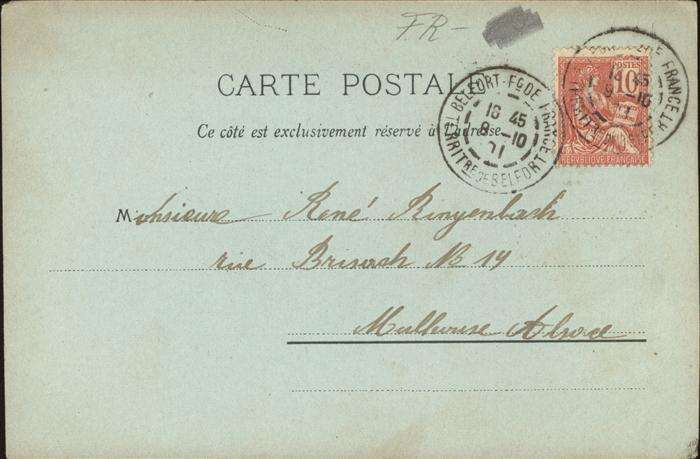 FR-
CARTE POSTALE
Ce côté est exclusivement réservé à l'adresse
BELFORT-FG DE FRANCE
16 45
8 -10
01
TERRITRE DE BELFORT
POSTES
10
REPUBLIQUE FRANÇAISE
Monsieur René Ringenbach
rue Brisach No 19
Mulhouse Alsace